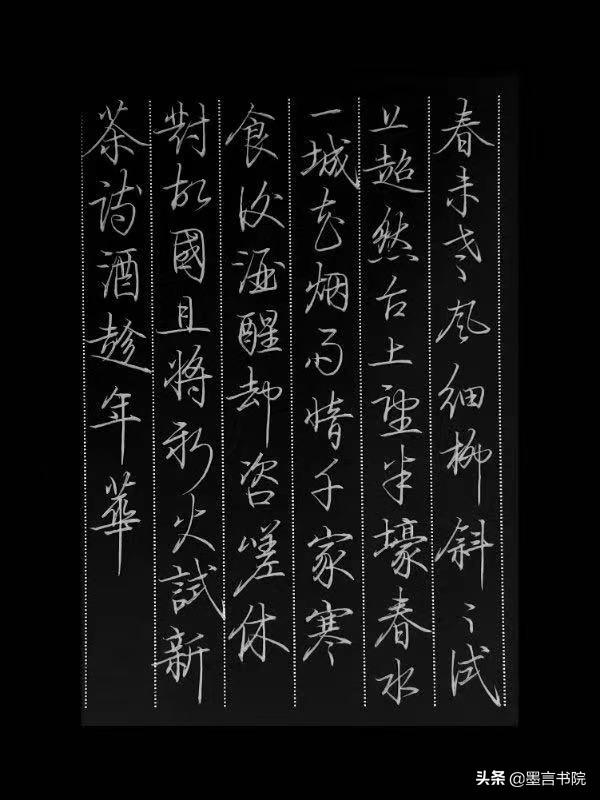 春未老風细柳斜〻试
上超然台上望半壕春水
一城花烟雨暗千家寒
食後酒醒却咨嗟休
對故國且將新火試新
茶詩酒趁年華
头条 @墨言书院